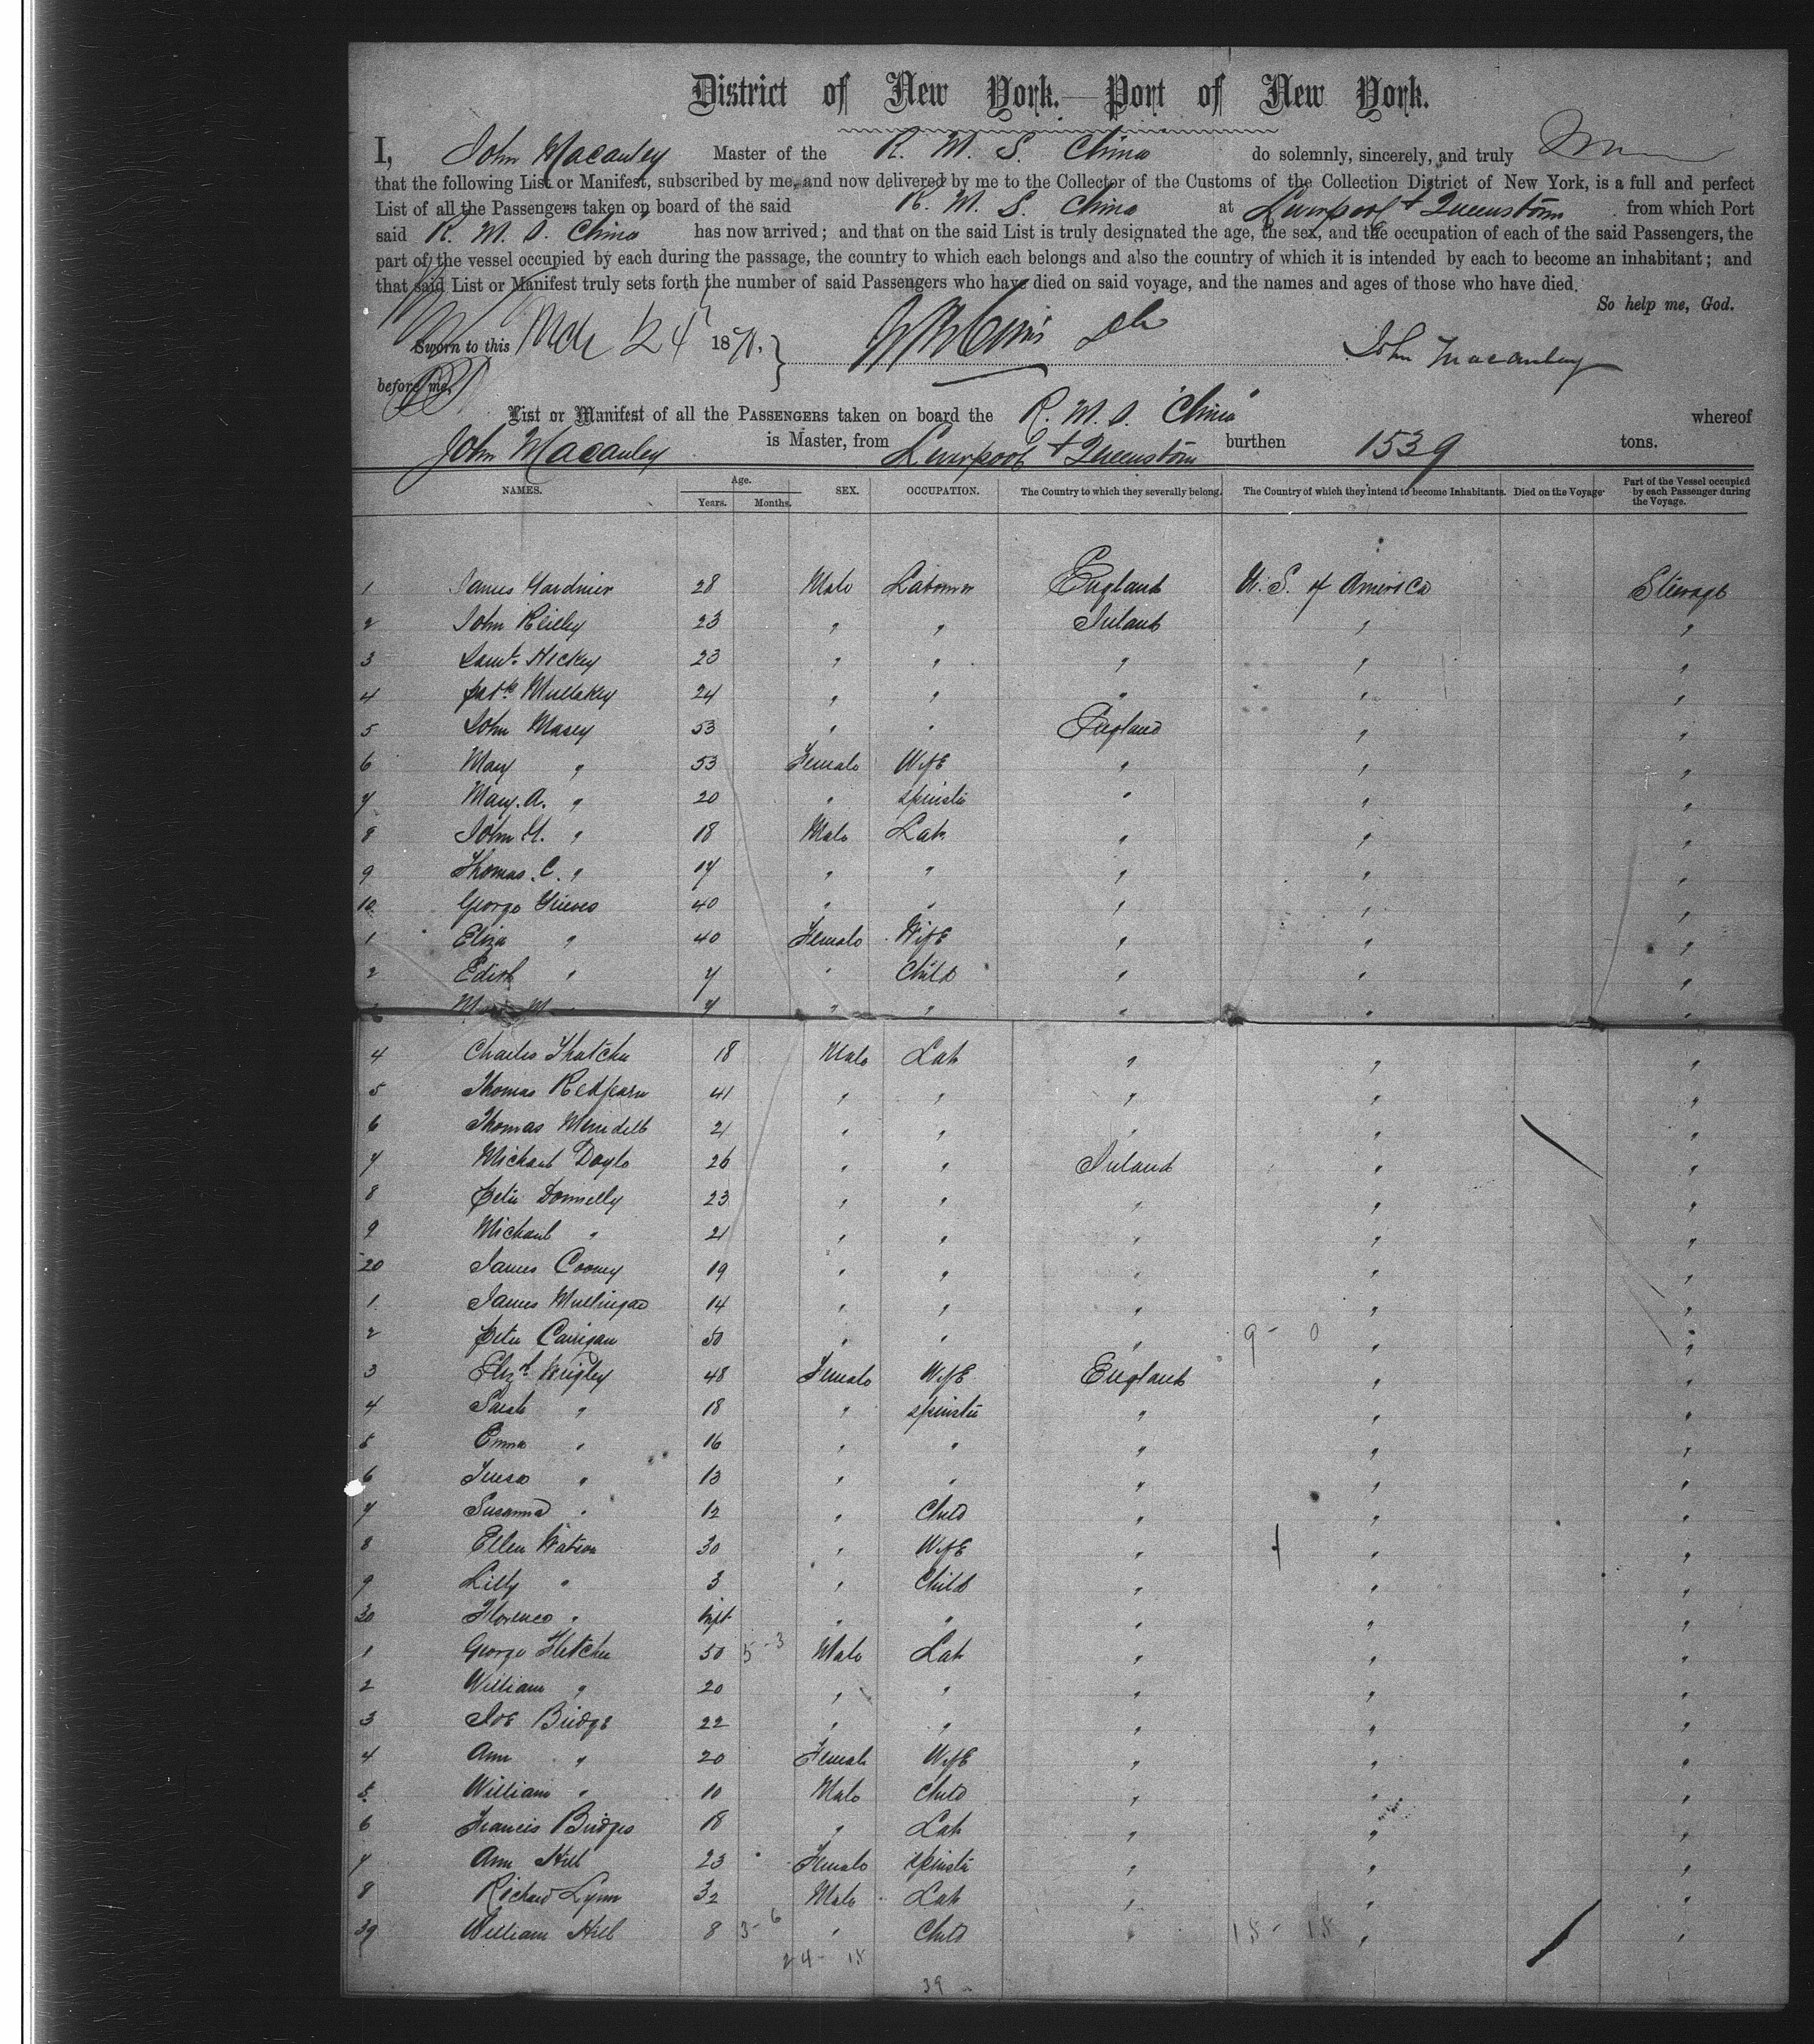 District of New York.—Port of New York.
I, John Macauley Master of the R. M. S. China do solemnly, sincerely, and truly
that the following List or Manifest, subscribed by me, and now delivered by me to the Collector of the Customs of the Collection District of New York, is a full and perfect
List of all the Passengers taken on board of the said R. M. S. China at Liverpool + Queenstown from which Port
said R. M. S. China has now arrived; and that on the said List is truly designated the age, the sex, and the occupation of each of the said Passengers, the
part of the vessel occupied by each during the passage, the country to which each belongs and also the country of which it is intended by each to become an inhabitant; and
that said List or Manifest truly sets forth the number of said Passengers who have died on said voyage, and the names and ages of those who have died.
So help me, God.
Sworn to this 24 18 John Macauley
before me,
List or Manifest of all the Passengers taken on board the R. M. S. "China" whereof
John Macauley is Master, from Liverpool + Queenstown burthen 1539 tons.
NAMES. Age. Years. Months. SEX. OCCUPATION. The Country to which they severally belong. The Country of which they intend to become Inhabitants. Died on the Voyage. Part of the Vessel occupied by each Passenger during the Voyage.
1 James Gardner 28 Male Labourer England U. S. of America Steerage
2 John Reilley 23 " " Ireland " "
3 Saml. Hickey 23 " " " " "
4 Patk Mullakey 24 " " " " "
5 John Masey 53 " " England " "
6 Mary " 53 Female Wife " " "
7 Mary. A. " 20 " Spinster " " "
8 John H. " 18 Male Lab " " "
9 Thomas. C. " 17 " " " " "
10 George Grieves 40 " " " " "
1 Eliza " 40 Female Wife " " "
2 Edith " 7 " Child " " "
M " " " " " "
4 Charles Thatcher 18 Male Lab " " "
5 Thomas Redfearn 41 " " " " "
6 Thomas 21 " " " " "
7 Michael Doyle 26 " " Ireland " "
8 Peter Donnelly 23 " " " " "
9 Michael " 21 " " " " "
20 James Cooney 19 " " " " "
1 James Mullingar 14 " " " " "
2 Peter Carrigan 50 " " " 9 - 0 " "
3 Elizh Wrigley 48 Female Wife England " "
4 Sarah " 18 " Spinster " " "
5 Emma " 16 " " " " "
6 " 13 " " " " "
7 Susanna " 12 " Child " " "
8 Ellen Watson 30 " Wife " " "
9 Lilly " 3 " Child " " "
30 Florence " Inft " " " " "
1 George Fletcher 50 5 - 3 Male Lab " " "
2 William " 20 " " " " "
3 Joe Bridge 22 " " " " "
4 Ann " 20 Female Wife " " "
5 William " 10 Male Child " " "
6 Francis Bridges 18 " Lab " " "
7 Ann Hill 23 Female Spinster " " "
8 Richard Lynn 32 Male Lab " " "
39 William Hill 8 3 - 6 " Child " 15 - 15 " "
24 - 15
39